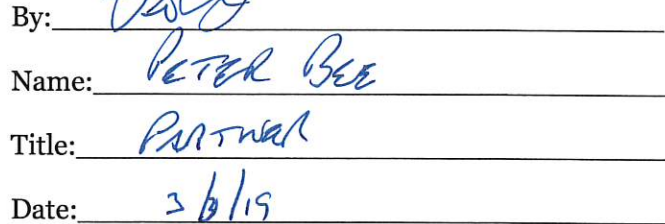 By:
Name: PETER BEE
Title: PARTNER
Date: